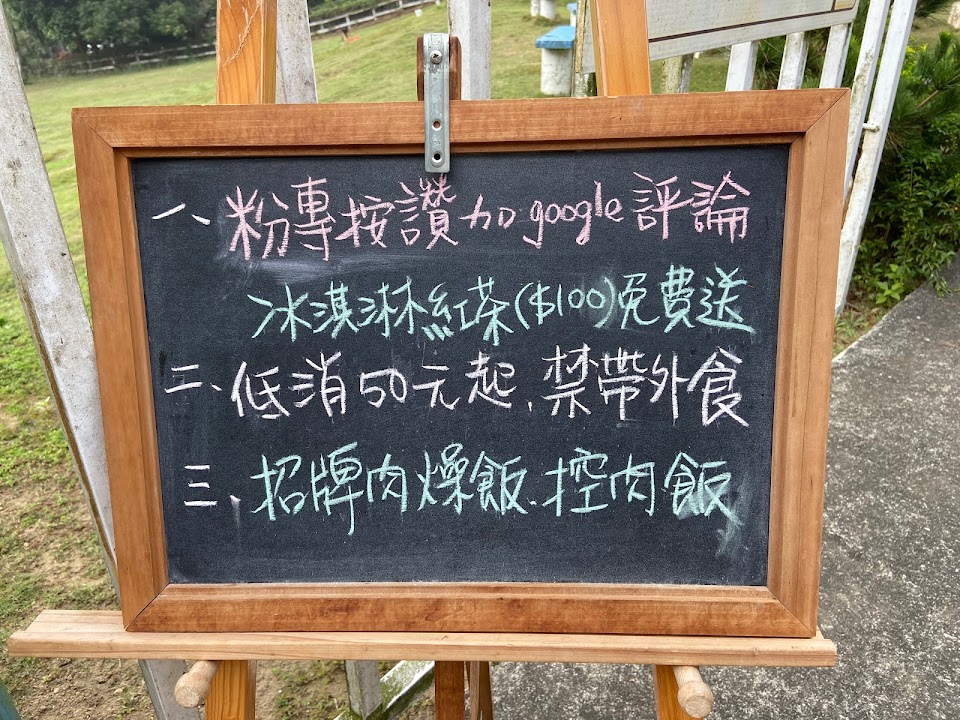 一、粉專按讚加google評論
冰淇淋紅茶($100)免費送
二、低消50元起、禁帶外食
三、招牌肉燥飯、控肉飯